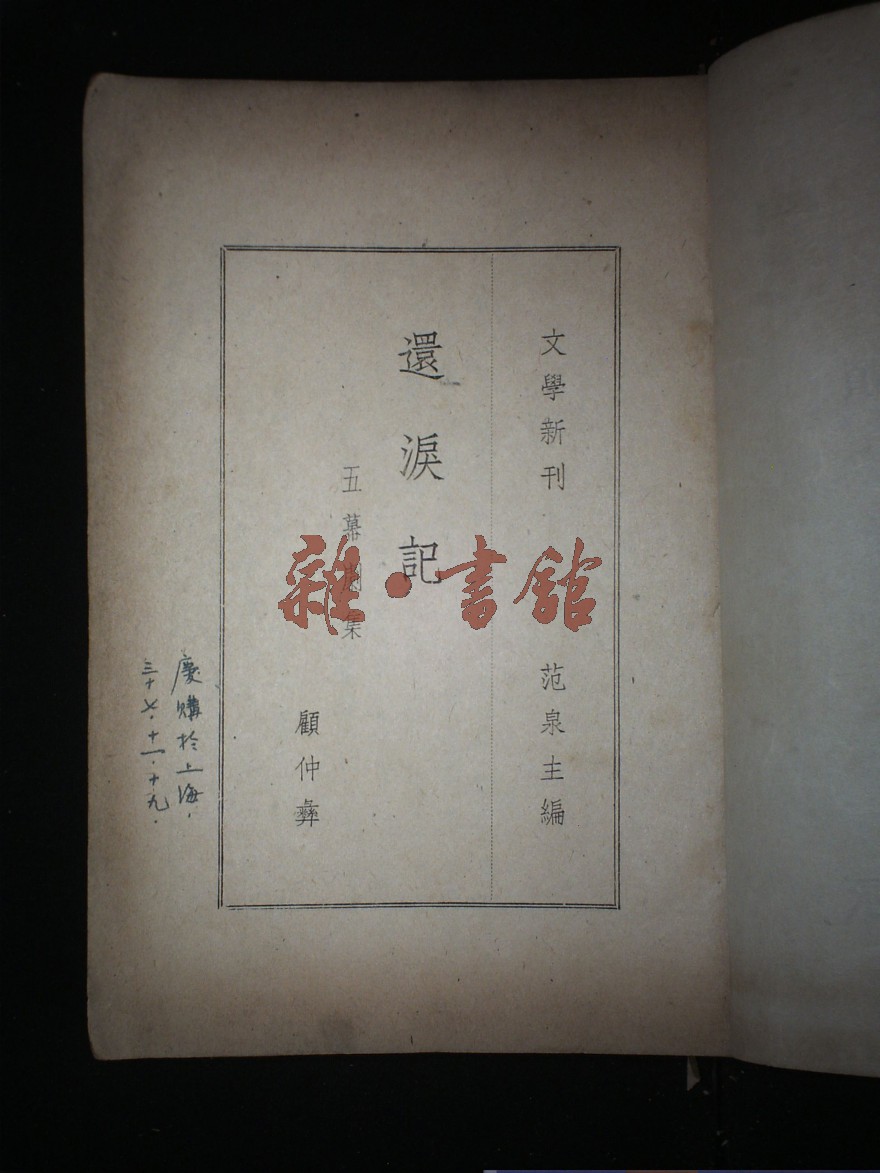 文學新刊 范泉主編
還淚記
五幕劇集
顧仲彝
慶購於上海.
三十七.十一.十九.
雜·書館